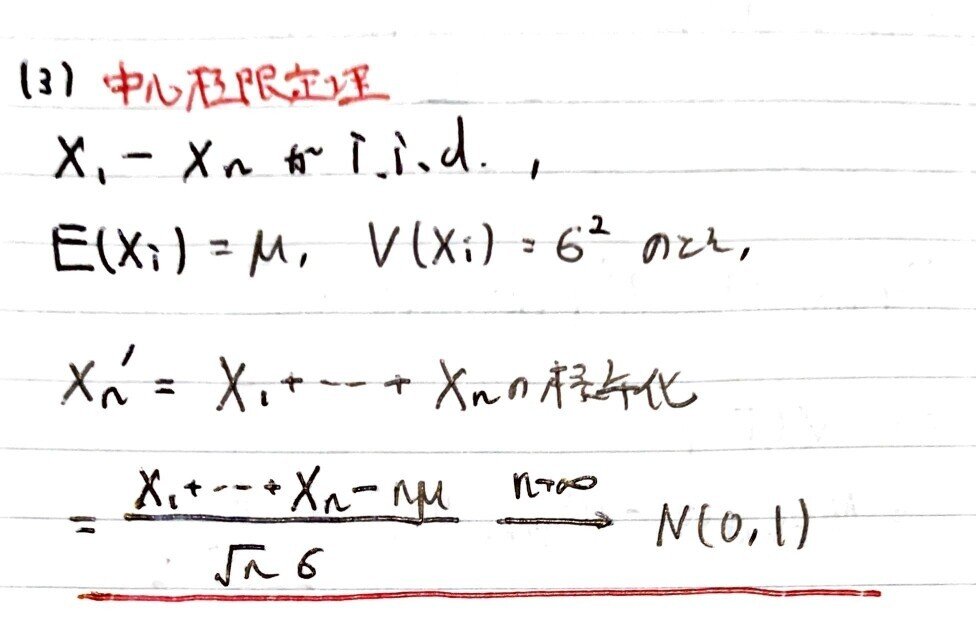 (3) 中心極限定理
X₁ - Xₙ が i.i.d. ,
E(Xᵢ) = μ, V(Xᵢ) = σ² のとき,
Xₙ' = X₁ + --- + Xₙ の標準化
= (X₁ + --- + Xₙ - nμ) / (√n σ) →(n→∞) N(0,1)